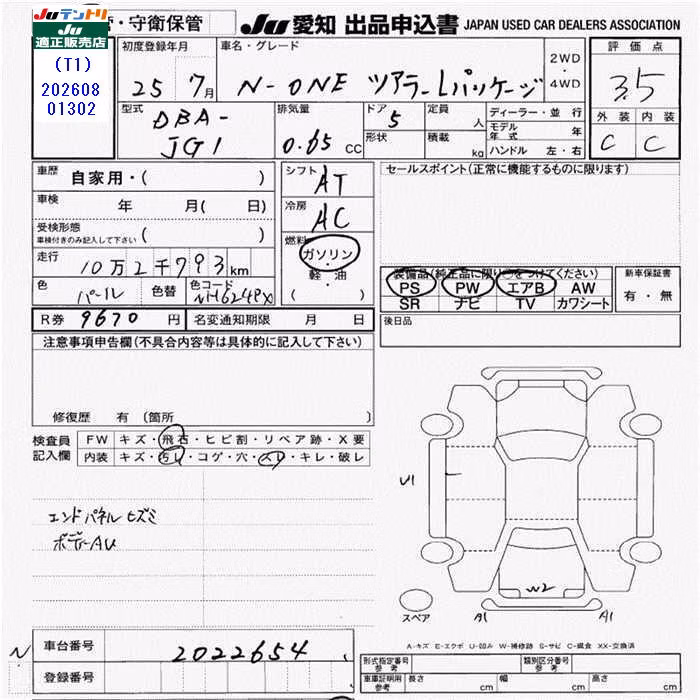 Juテントリ
Ju適正販売店
(T1)
202608
01302
・守衛保管
Ju 愛知 出品申込書 JAPAN USED CAR DEALERS ASSOCIATION
初度登録年月
25年 7月
車名・グレード
N-ONE ツアラーLパッケージ
2WD
・
4WD
評価点
3.5
型式
DBA-
JG1
排気量
0.65 CC
ドア
5
形状
定員
人
積載
kg
ディーラー・並行
モデル年式 年
ハンドル 左・右
外装 内装
C C
車歴 自家用・( )
車検 年 月( 日)
受検形態
車検付きのみ記入して下さい ( )
走行 10万2千793km
色 パール 色替 色コード NH624PX
シフト
AT
冷房
AC
燃料
ガソリン
・
軽・油
( )
セールスポイント(正常に機能するものに限ります)
装備品(純正品に限り○をつけてください)
PS PW エアB AW
SR ナビ TV カワシート
新車保証書
有・無
R券 9670円 名変通知期限 月 日
後日品
注意事項申告欄(不具合内容等は具体的に記入して下さい)
修復歴 有 (箇所 )
検査員記入欄
FW キズ・飛石・ヒビ割・リペア跡・X要
内装 キズ・汚レ・コゲ・穴・スレ・キレ・破レ
エンドパネルヒズミ
ボデーAU
U1
W2
A1
A1
スペア
A-キズ E-エクボ U-凹み W-補修跡 S-サビ C-腐食 XX-交換済
N
車台番号 2022654
登録番号
形式指定番号
参考
類別区分番号
参考
車庫証明用
参考
長さ cm 幅 cm 高さ cm